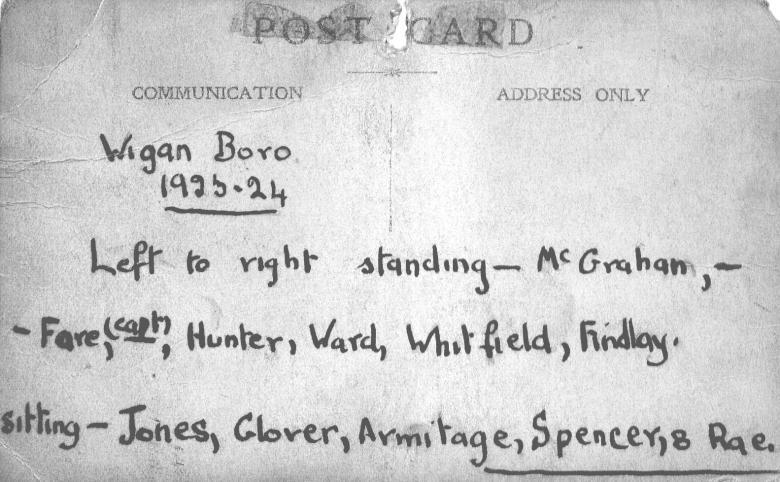 POST CARD
COMMUNICATION
ADDRESS ONLY
Wigan Boro
1923-24
Left to right standing - McGraham, -
- Fare, (capt), Hunter, Ward, Whitfield, Findlay.
sitting - Jones, Glover, Armitage, Spencer, & Rae.